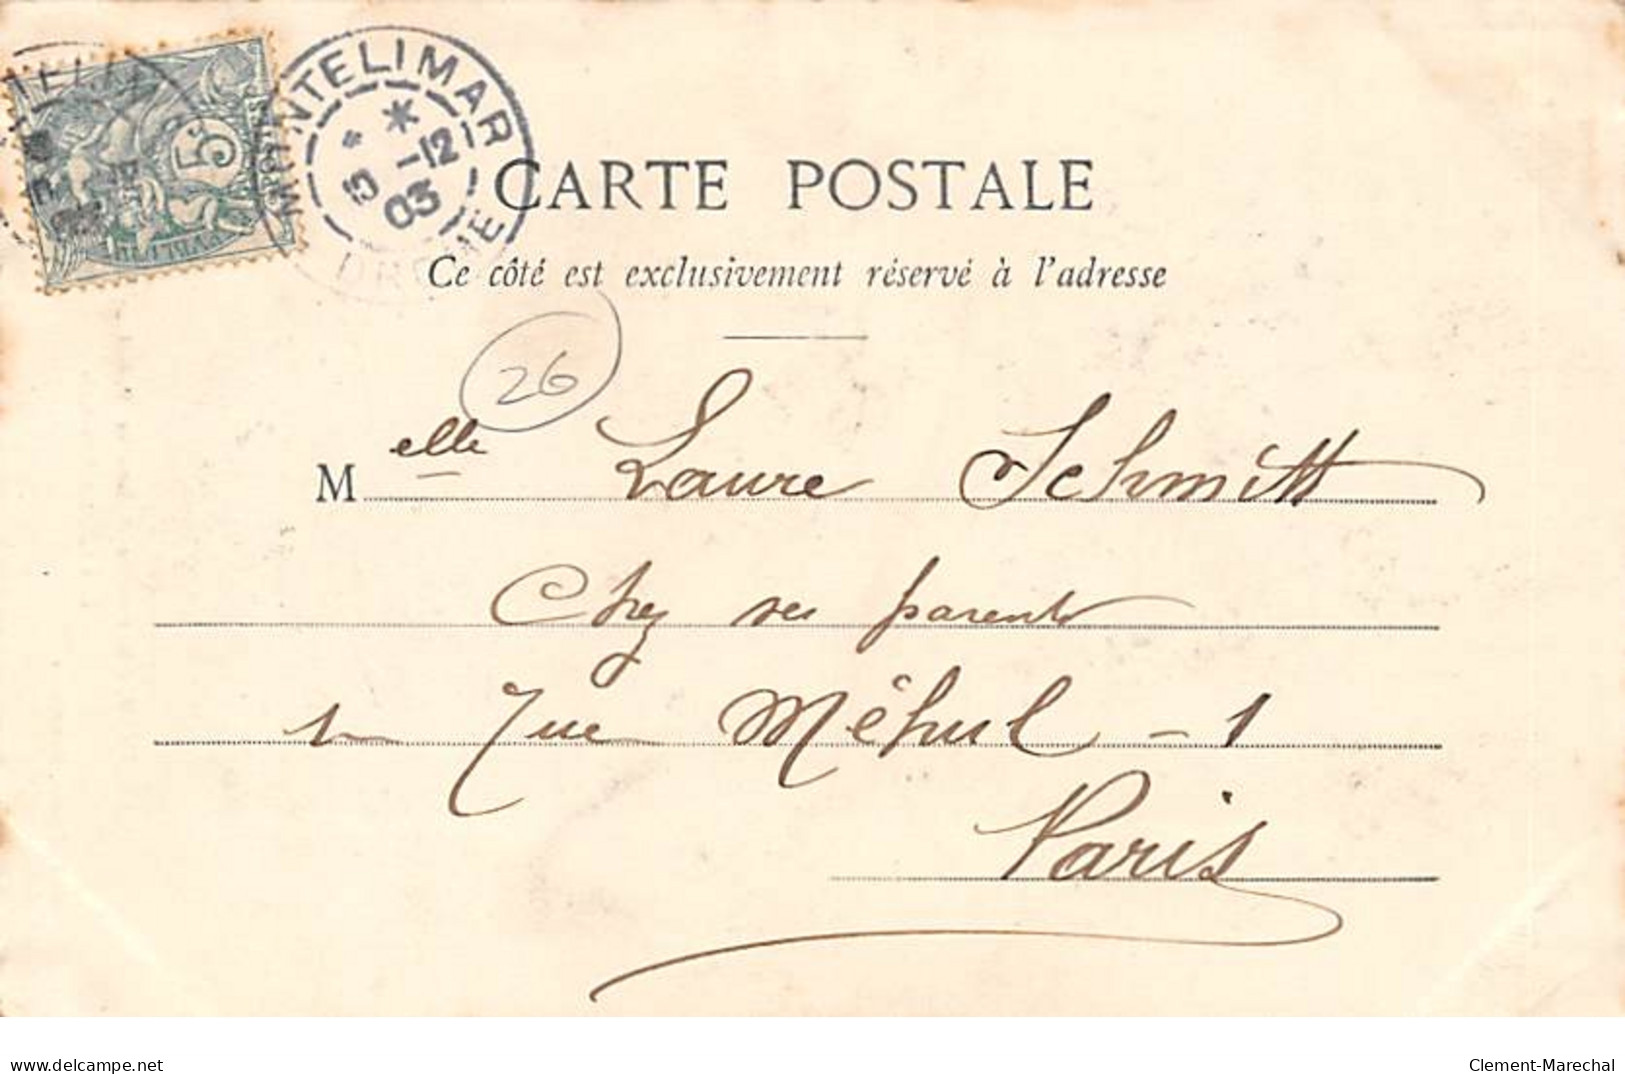 MONTELIMAR
5 -12
03
DROME
5c
CARTE POSTALE
Ce côté est exclusivement réservé à l'adresse
26
Melle Laure Schmitt
Chez ses parents
1 rue Méhul - 1
Paris
www.delcampe.net
Clement-Marechal